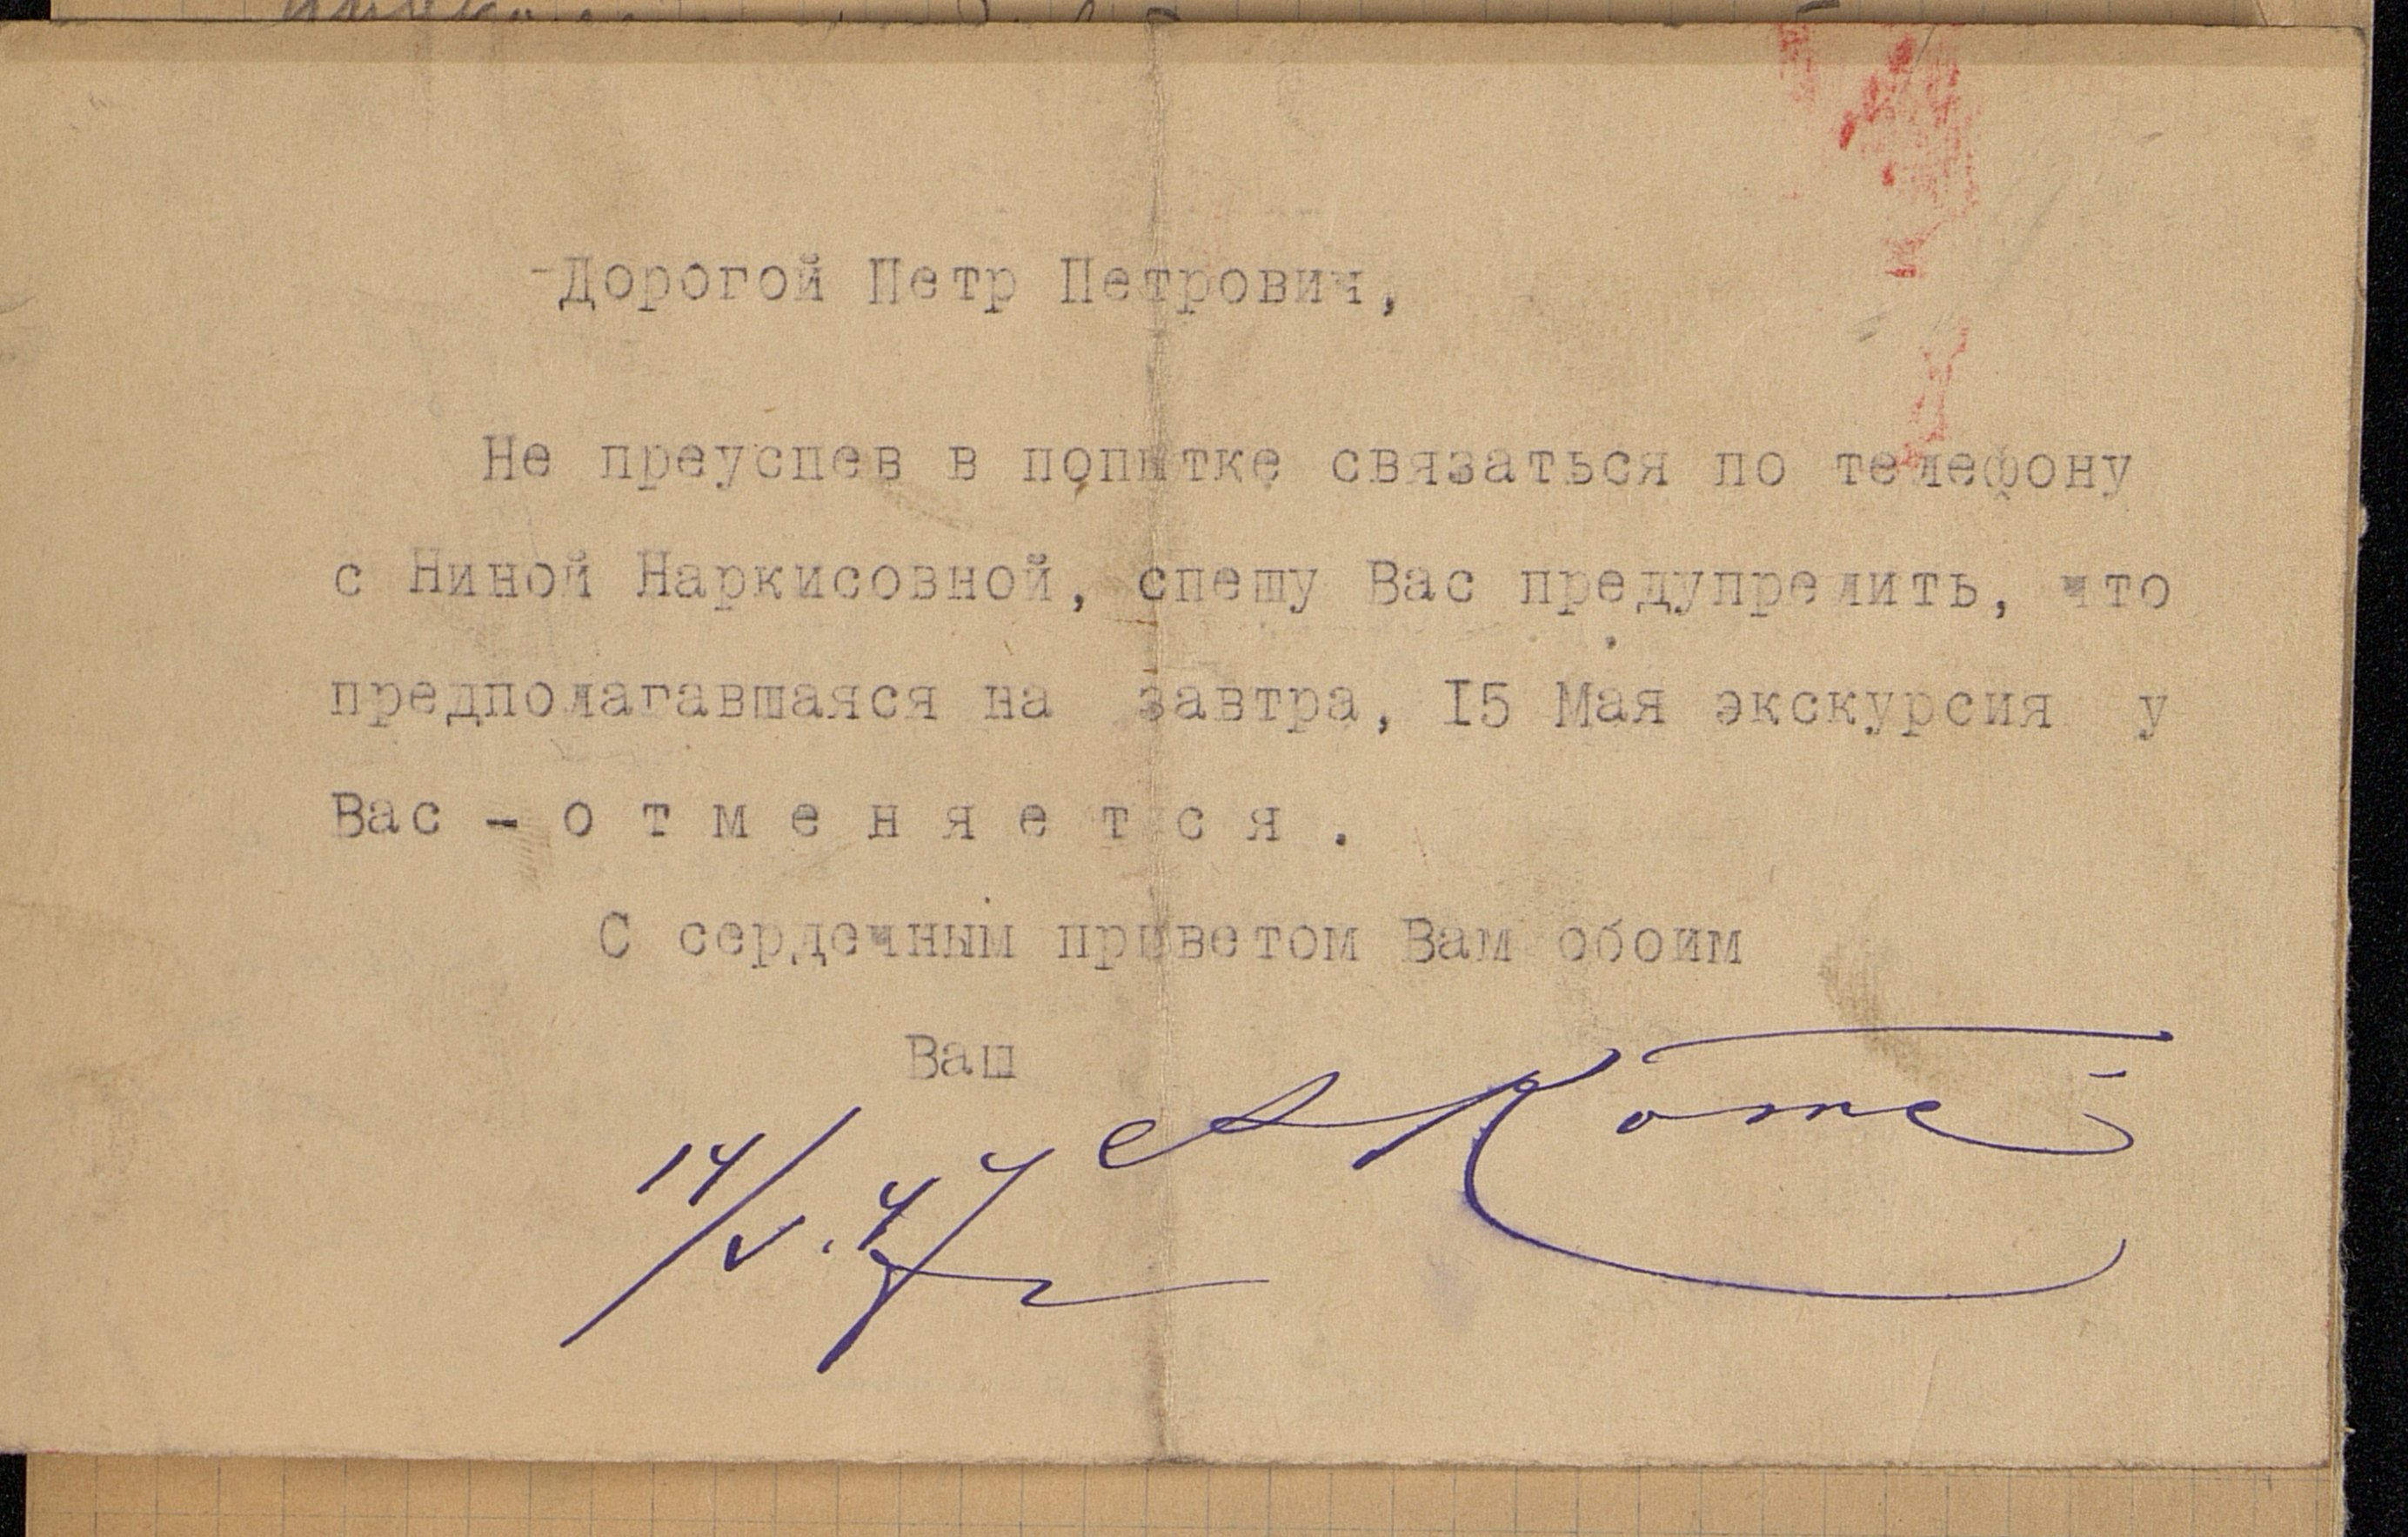 -Дорогой Петр Петрович,
Не преуспев в попытке связаться по телефону
с Ниной Наркисовной, спешу Вас предупредить, что
предполагавшаяся на завтра, 15 Мая экскурсия у
Вас - о т м е н я е т с я .
С сердечным приветом Вам обоим
Ваш
14/V.47